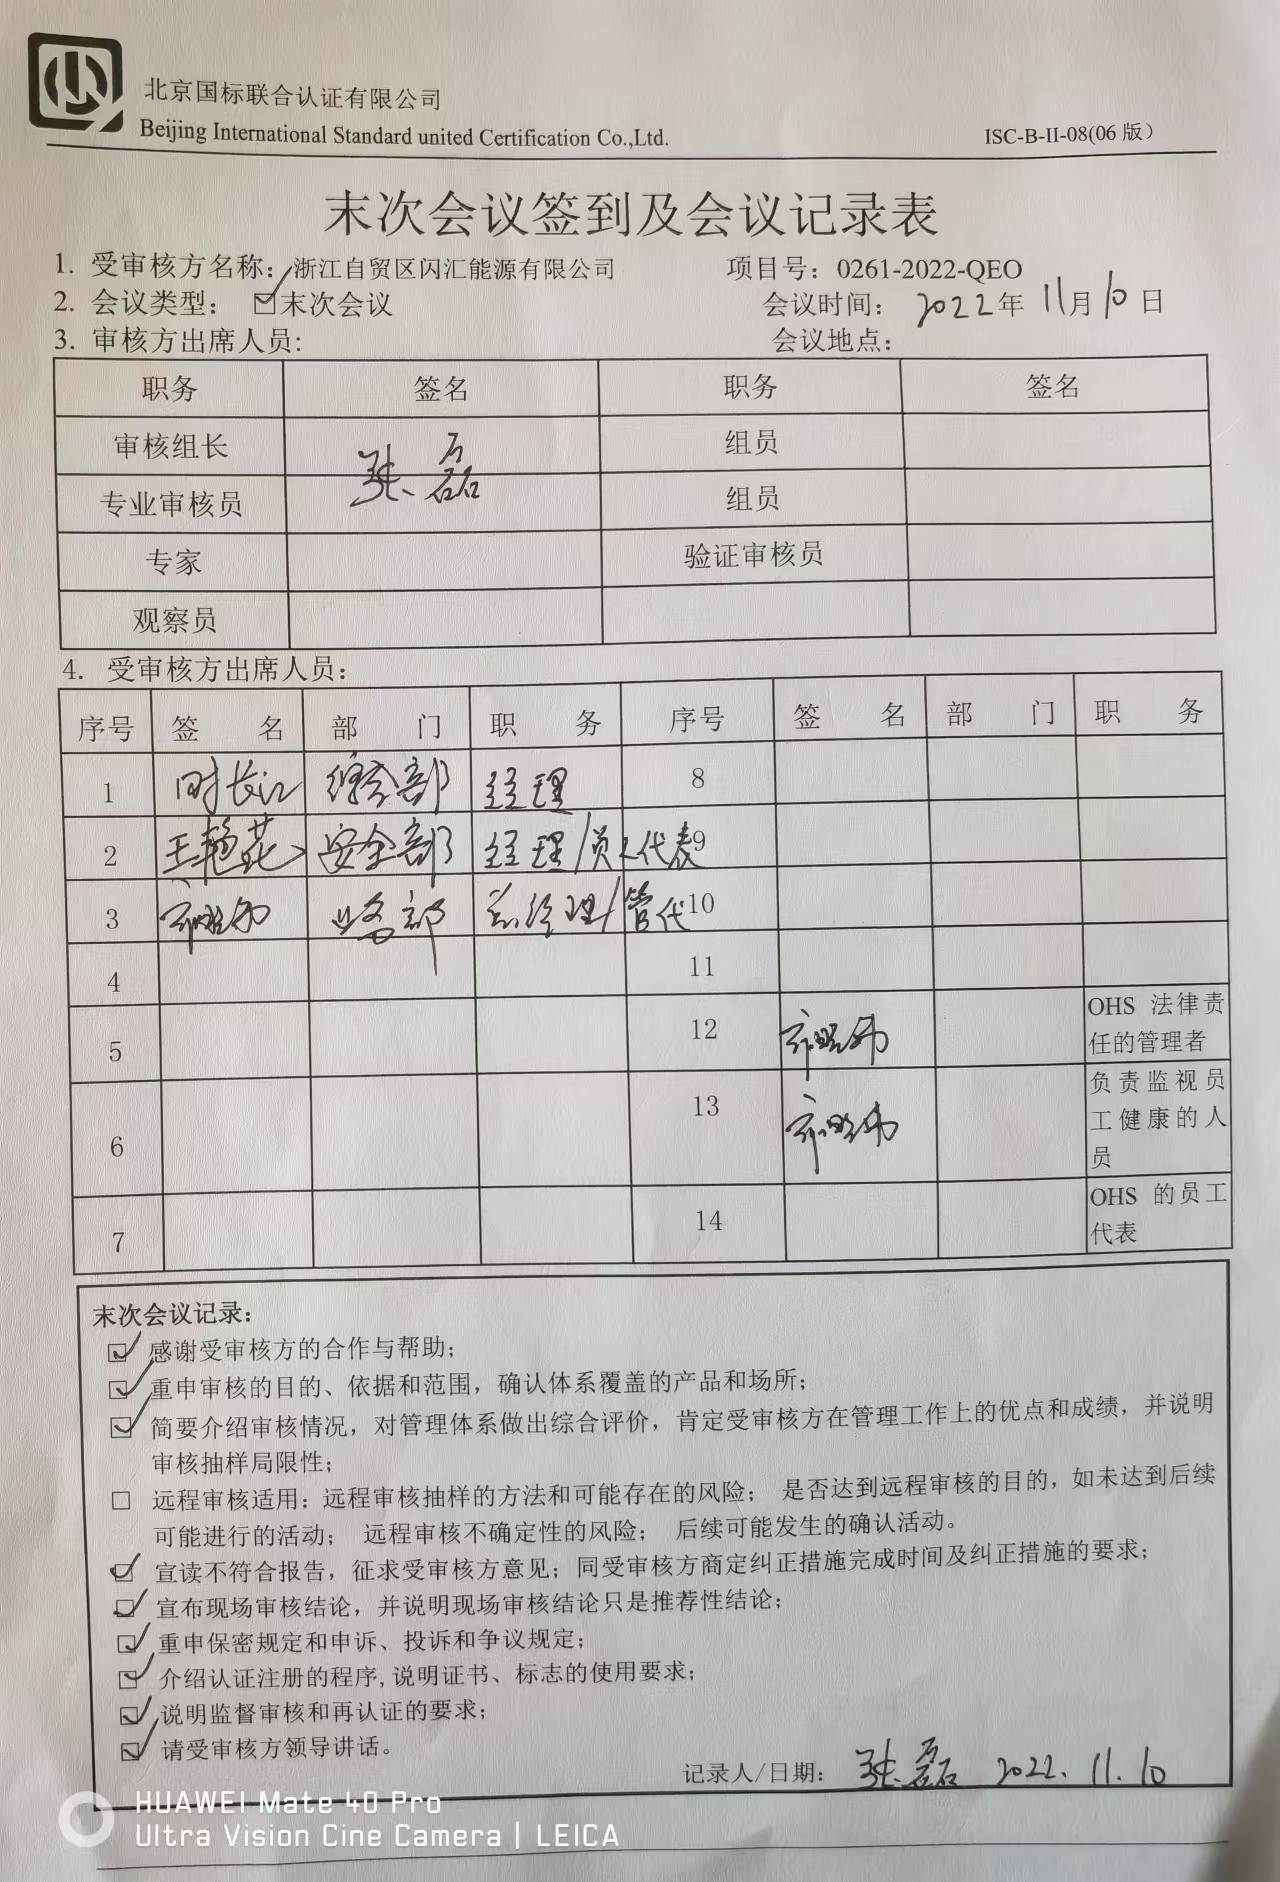 北京国标联合认证有限公司
Beijing International Standard united Certification Co.,Ltd.
ISC-B-II-08(06 版)
末次会议签到及会议记录表
1. 受审核方名称：浙江自贸区闪汇能源有限公司 项目号：0261-2022-QEO
2. 会议类型： ☑末次会议 会议时间： 2022年 11月 10 日
3. 审核方出席人员: 会议地点：
职务 签名 职务 签名
审核组长 张磊 组员
专业审核员 组员
专家 验证审核员
观察员
4. 受审核方出席人员：
序号 签 名 部 门 职 务 序号 签 名 部 门 职 务
1 时长江 综合部 经理 8
2 王艳花 安全部 经理/员工代表 9
3 业务部 总经理/管代 10
4 11
5 12 OHS 法律责
任的管理者
6 13 负责监视员
工健康的人
员
7 14 OHS 的员工
代表
末次会议记录：
☑ 感谢受审核方的合作与帮助；
☑ 重申审核的目的、依据和范围，确认体系覆盖的产品和场所；
☑ 简要介绍审核情况，对管理体系做出综合评价，肯定受审核方在管理工作上的优点和成绩，并说明
审核抽样局限性；
□ 远程审核适用：远程审核抽样的方法和可能存在的风险； 是否达到远程审核的目的，如未达到后续
可能进行的活动； 远程审核不确定性的风险； 后续可能发生的确认活动。
☑ 宣读不符合报告，征求受审核方意见；同受审核方商定纠正措施完成时间及纠正措施的要求；
☑ 宣布现场审核结论，并说明现场审核结论只是推荐性结论；
☑ 重申保密规定和申诉、投诉和争议规定；
☑ 介绍认证注册的程序,说明证书、标志的使用要求；
☑ 说明监督审核和再认证的要求；
☑ 请受审核方领导讲话。
记录人/日期： 张磊 2022.11.10
HUAWEI Mate 40 Pro
Ultra Vision Cine Camera | LEICA